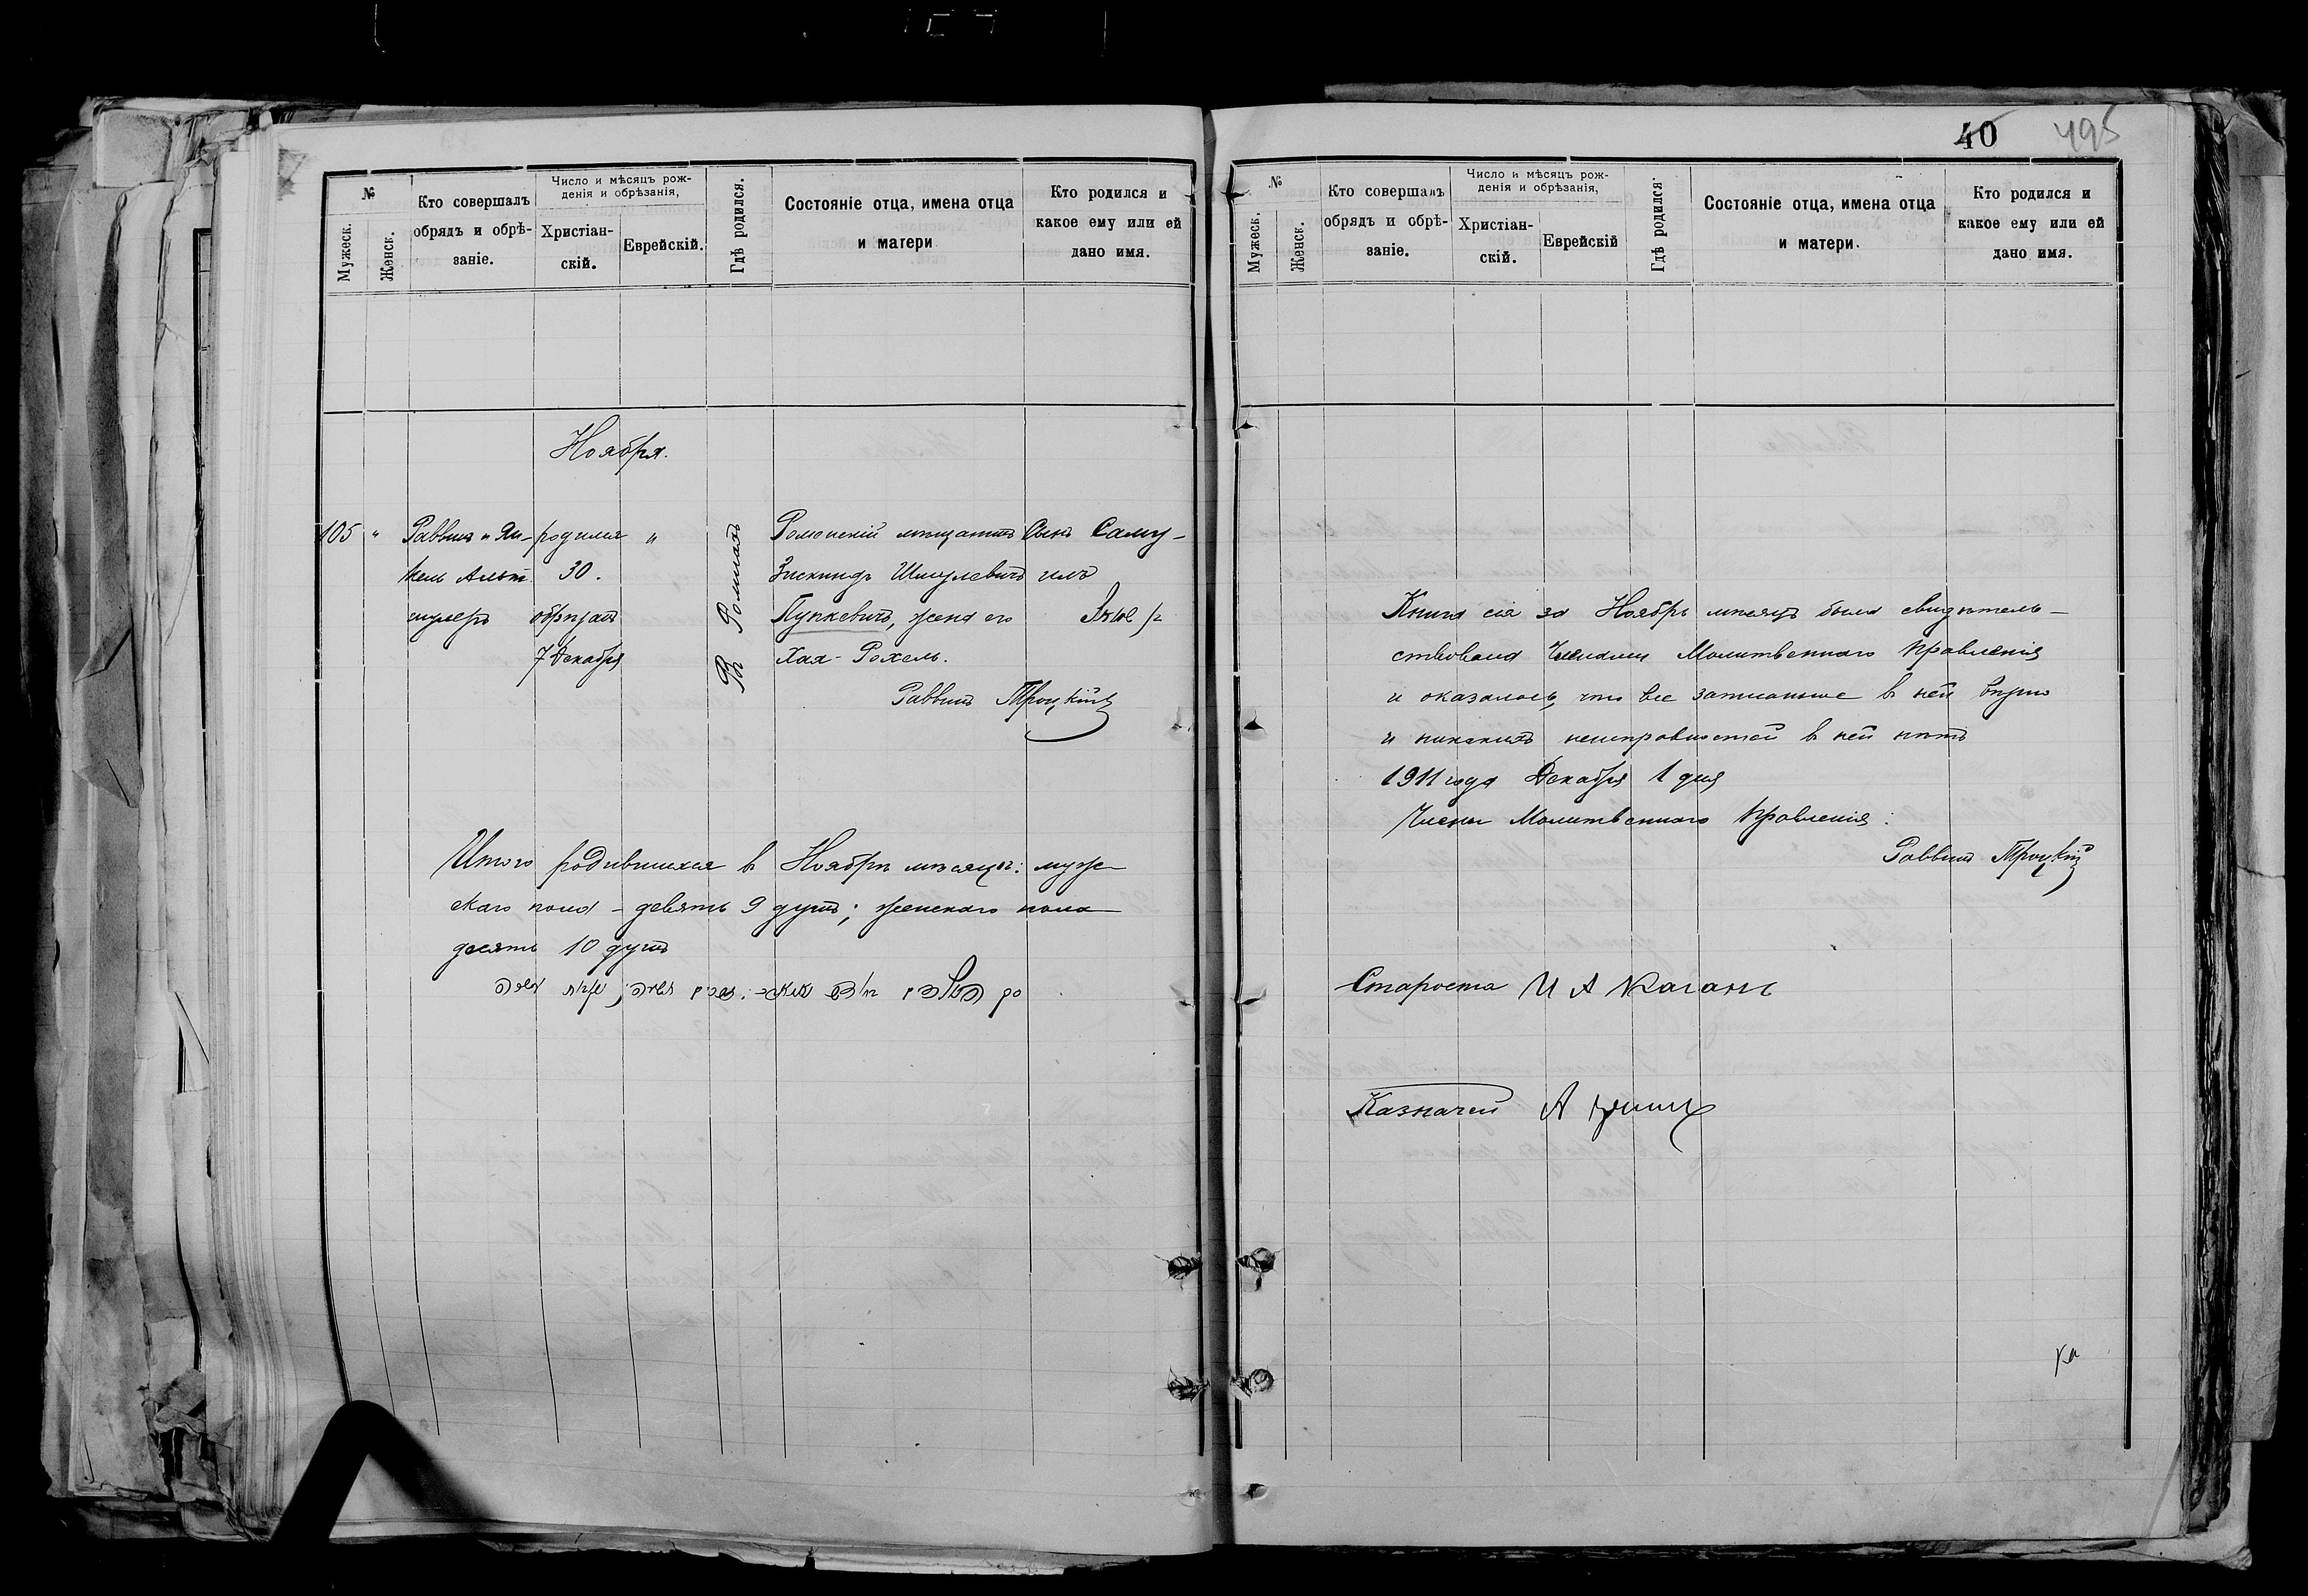 40 495
№
Мужеск.
Женск.
Кто совершалъ
обрядъ и обрѣ-
заніе.
Число и мѣсяцъ рож-
денія и обрѣзанія,
Христіан-
скій.
Еврейскій.
Гдѣ родился.
Состояніе отца, имена отца
и матери
Кто родился и
какое ему или ей
дано имя.
Ноября.
105 " Раввинъ и Ян-
кель Альт
шулеръ
родился
30.
обрѣзанъ
7 Декабря
"
Въ Ромнахъ
Роменскій мѣщанинъ
Зискиндъ Шмулевичъ
Пункевичъ, жена его
Хая-Рохель.
Сынъ Саму-
илъ
Раввинъ Троцкій
Итого родившихся в Ноябрѣ мѣсяцѣ: муже-
скаго пола - девять 9 душъ; женскаго пола
десять 10 душъ
№
Мужеск.
Женск.
Кто совершалъ
обрядъ и обрѣ-
заніе.
Число и мѣсяцъ рож-
денія и обрѣзанія,
Христіан-
скій.
Еврейскій
Гдѣ родился
Состояніе отца, имена отца
и матери.
Кто родился и
какое ему или ей
дано имя.
Книга сія за Ноябрь мѣсяцъ была свидѣтель-
ствована Членами Молитвеннаго Правленія
и оказалось, что все записанное в ней вѣрно
и никакихъ неисправностей в ней нѣтъ
1911 года Декабря 1 дня
Члены Молитвеннаго Правленія:
Раввинъ Троцкій
Староста И А Каганъ
Казначей А